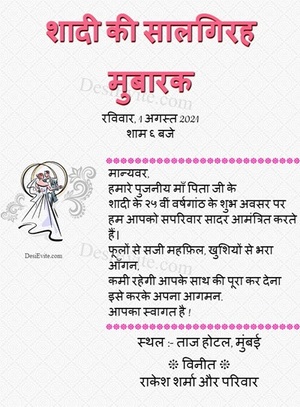 शादी की सालगिरह
मुबारक
DesiEvite.com
रविवार, 1 अगस्त 2021
शाम ६ बजे
मान्यवर,
हमारे पुजनीय माँ पिता जी के
शादी के २५ वीं वर्षगांठ के शुभ अवसर पर
हम आपको सपरिवार सादर आमंत्रित करते
हैं।
DesiEvite.com
फूलों से सजी महफ़िल, खुशियों से भरा
आँगन,
कमी रहेगी आपके साथ की पूरा कर देना
इसे करके अपना आगमन.
आपका स्वागत है !
DesiEvite.com
स्थल :- ताज होटल, मुंबई
❊ विनीत ❊
राकेश शर्मा और परिवार